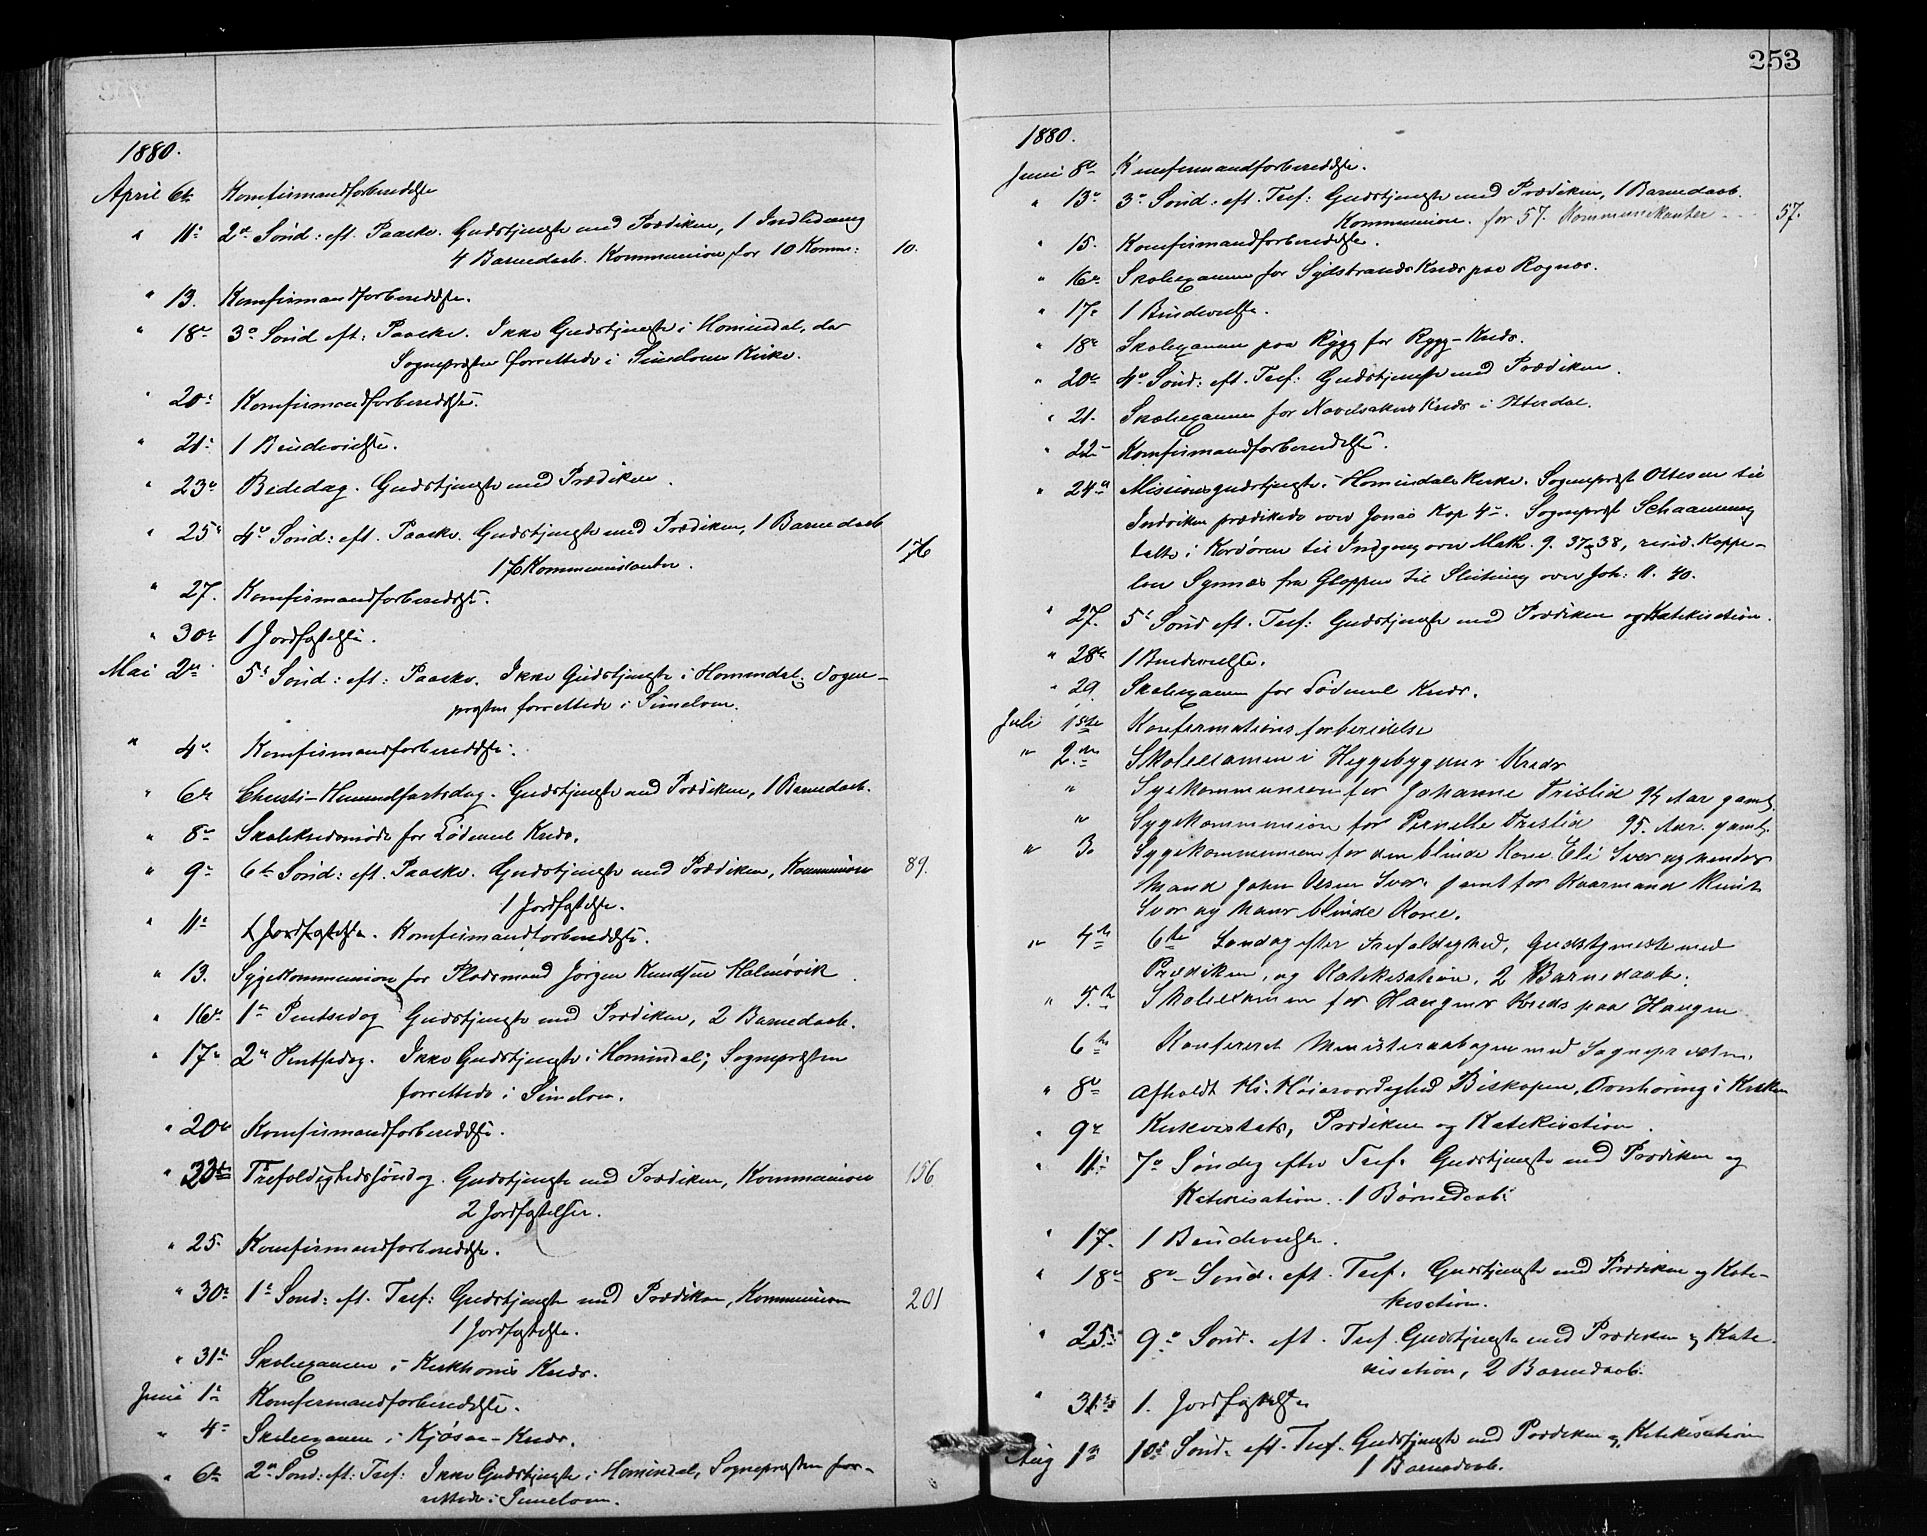 1880.
April 6te Konfirmandforberedelse
" 11te 2den Sønd: eft. Paaske. Gudstjeneste med Prædiken, 1 Indledning
4 Barnedaab. Kommunion for 10 Komm: 10.
" 13. Konfirmandforberedelse.
" 18de 3die Sønd eft: Paaske. Ikke Gudstjeneste i Hornindal, da
Sognepræsten forrettede i Simelvem Kirke.
" 20de Konfirmandforberedelse.
" 21de 1 Brudevielse.
" 23de Bededag. Gudstjeneste med Prædiken.
" 25de 4de Sønd: eft. Paaske. Gudstjeneste med Prædiken, 1 Barnedaab
176 Kommunikanter. 176
" 27. Konfirmandforberedelse.
" 30te 1 Jordfæstelse.
Mai 2den 5te Sønd: eft: Paaske. Ikke Gudstjeneste i Hornindal. Sogne-
præsten forrettede i Simelvem.
" 4de Konfirmandforberedelse.
" 6te Christi-Himmelfartsdag. Gudstjeneste med Prædiken, 1 Barnedaab.
" 8de Skolekredsmøde for Lødemel Kreds.
" 9de 6te Sønd: eft. Paaske. Gudstjeneste med Prædiken, Kommunion 89.
1 Jordfæstelse.
" 11te 1 Jordfæstelse. Konfirmandforberedelse.
" 13. Sygekommunion for Pladsmand Jørgen Knudsen Holmøvik.
" 16de 1ste Pintsedag Gudstjeneste med Prædiken, 2 Barnedaab.
" 17de 2den Pintsedag. Ikke Gudstjeneste i Hornindal; Sognepræsten
forrettede i Simelvem.
" 20de Konfirmandforberedelse.
" 23de Trefoldighedssøndag. Gudstjeneste med Prædiken, Kommunion 156
2 Jordfæstelser.
" 25. Konfirmandforberedelse.
" 30te 1ste Sønd: eft. Tref: Gudstjeneste med Prædiken, Kommunion 201
1 Jordfæstelse.
" 31te Skoleexamen i Kirkhorns Kreds.
Juni 1ste Konfirmandforberedelse.
" 4de Skoleexamen i Kjøsaa-Kreds.
" 6te 2den Sønd: eft: Tref: Ikke Gudstjeneste i Hornindal, Sognepræsten for-
rettede i Simelvem.
253
1880.
Juni 8de Konfirmandforberedelse.
" 13de 3die Sønd: eft. Tref: Gudstjeneste med Prædiken, 1 Barnedaab.
Kommunion. for 57. Kommunikanter 57.
" 15. Konfirmandforberedelse.
" 16de Skoleexamen for Sydstrands Kreds paa Rognes.
" 17de 1 Brudevielse.
" 18de Skoleexamen paa Rygg for Rygg-Kreds.
" 20de 4de Sønd: eft. Tref: Gudstjeneste med Prædiken.
" 21. Skoleexamen for Navelsaker Kreds i Otterdal.
" 22. Konfirmandforberedelse.
" 24de Missionsgudstjeneste i Hornindals Kirke. Sognepræst Ottesen til
Indviken prædikede over Jonas Kap 4de. Sognepræst Schaanning
talte i Kordøren til Indgang over Math. 9. 37 og 38, resid. Kappe-
lan Synnæs fra Gloppen til Slutning over Joh: 11. 40.
" 27. 5te Sønd eft. Tref: Gudstjeneste med Prædiken og Katekisation.
" 28de 1 Brudevielse.
" 29. Skoleexamen for Lødemel Kreds.
Juli 1ste Konfirmationsforberedelse
" 2den Skoleexamen i Heggebygdens Kreds
" Sygekommunion for Johanne Tristid 94 Aar gamb.
" Sygekommunion for Pernelle Tristid 95. Aar. gamb.
" 3. Sygekommunion for den blinde Kone Eli Svor og hendes
Mand John Olsen Svor. samt for Kaarmand Knut
Svor og hans blinde Kone.
" 4de 6te Søndag efter Trefoldighed, Gudstjeneste med
Prædiken, og Katekisation, 2 Barnedaab.
" 5te Skoleexamen for Haugens Kreds paa Haugen
6te Konfereret Ministerialbogen med Sognepræsten.
" 8de Afholdt Hs. Høiærværdighed Biskopen, Overhøring i Kirken
" 9de Kirkevisitats, Prædiken og Katekisation.
" 11te 7de Søndag efter Tref. Gudstjeneste med Prædiken og
Katekisation. 1 Barnedaab.
" 17. 1 Brudevielse.
" 18de 8de Sønd. eft. Tref. Gudstjeneste med Prædiken og Kate-
kisation.
" 25de 9de Sønd. eft. Tref. Gudstjeneste med Prædiken og Kate-
kisation, 2 Barnedaab.
" 31te 1. Jordfæstelse
Aug 1ste 10de Sønd. eft. Tref. Gudstjeneste med Prædiken og Katekisation
1 Barnedaab.